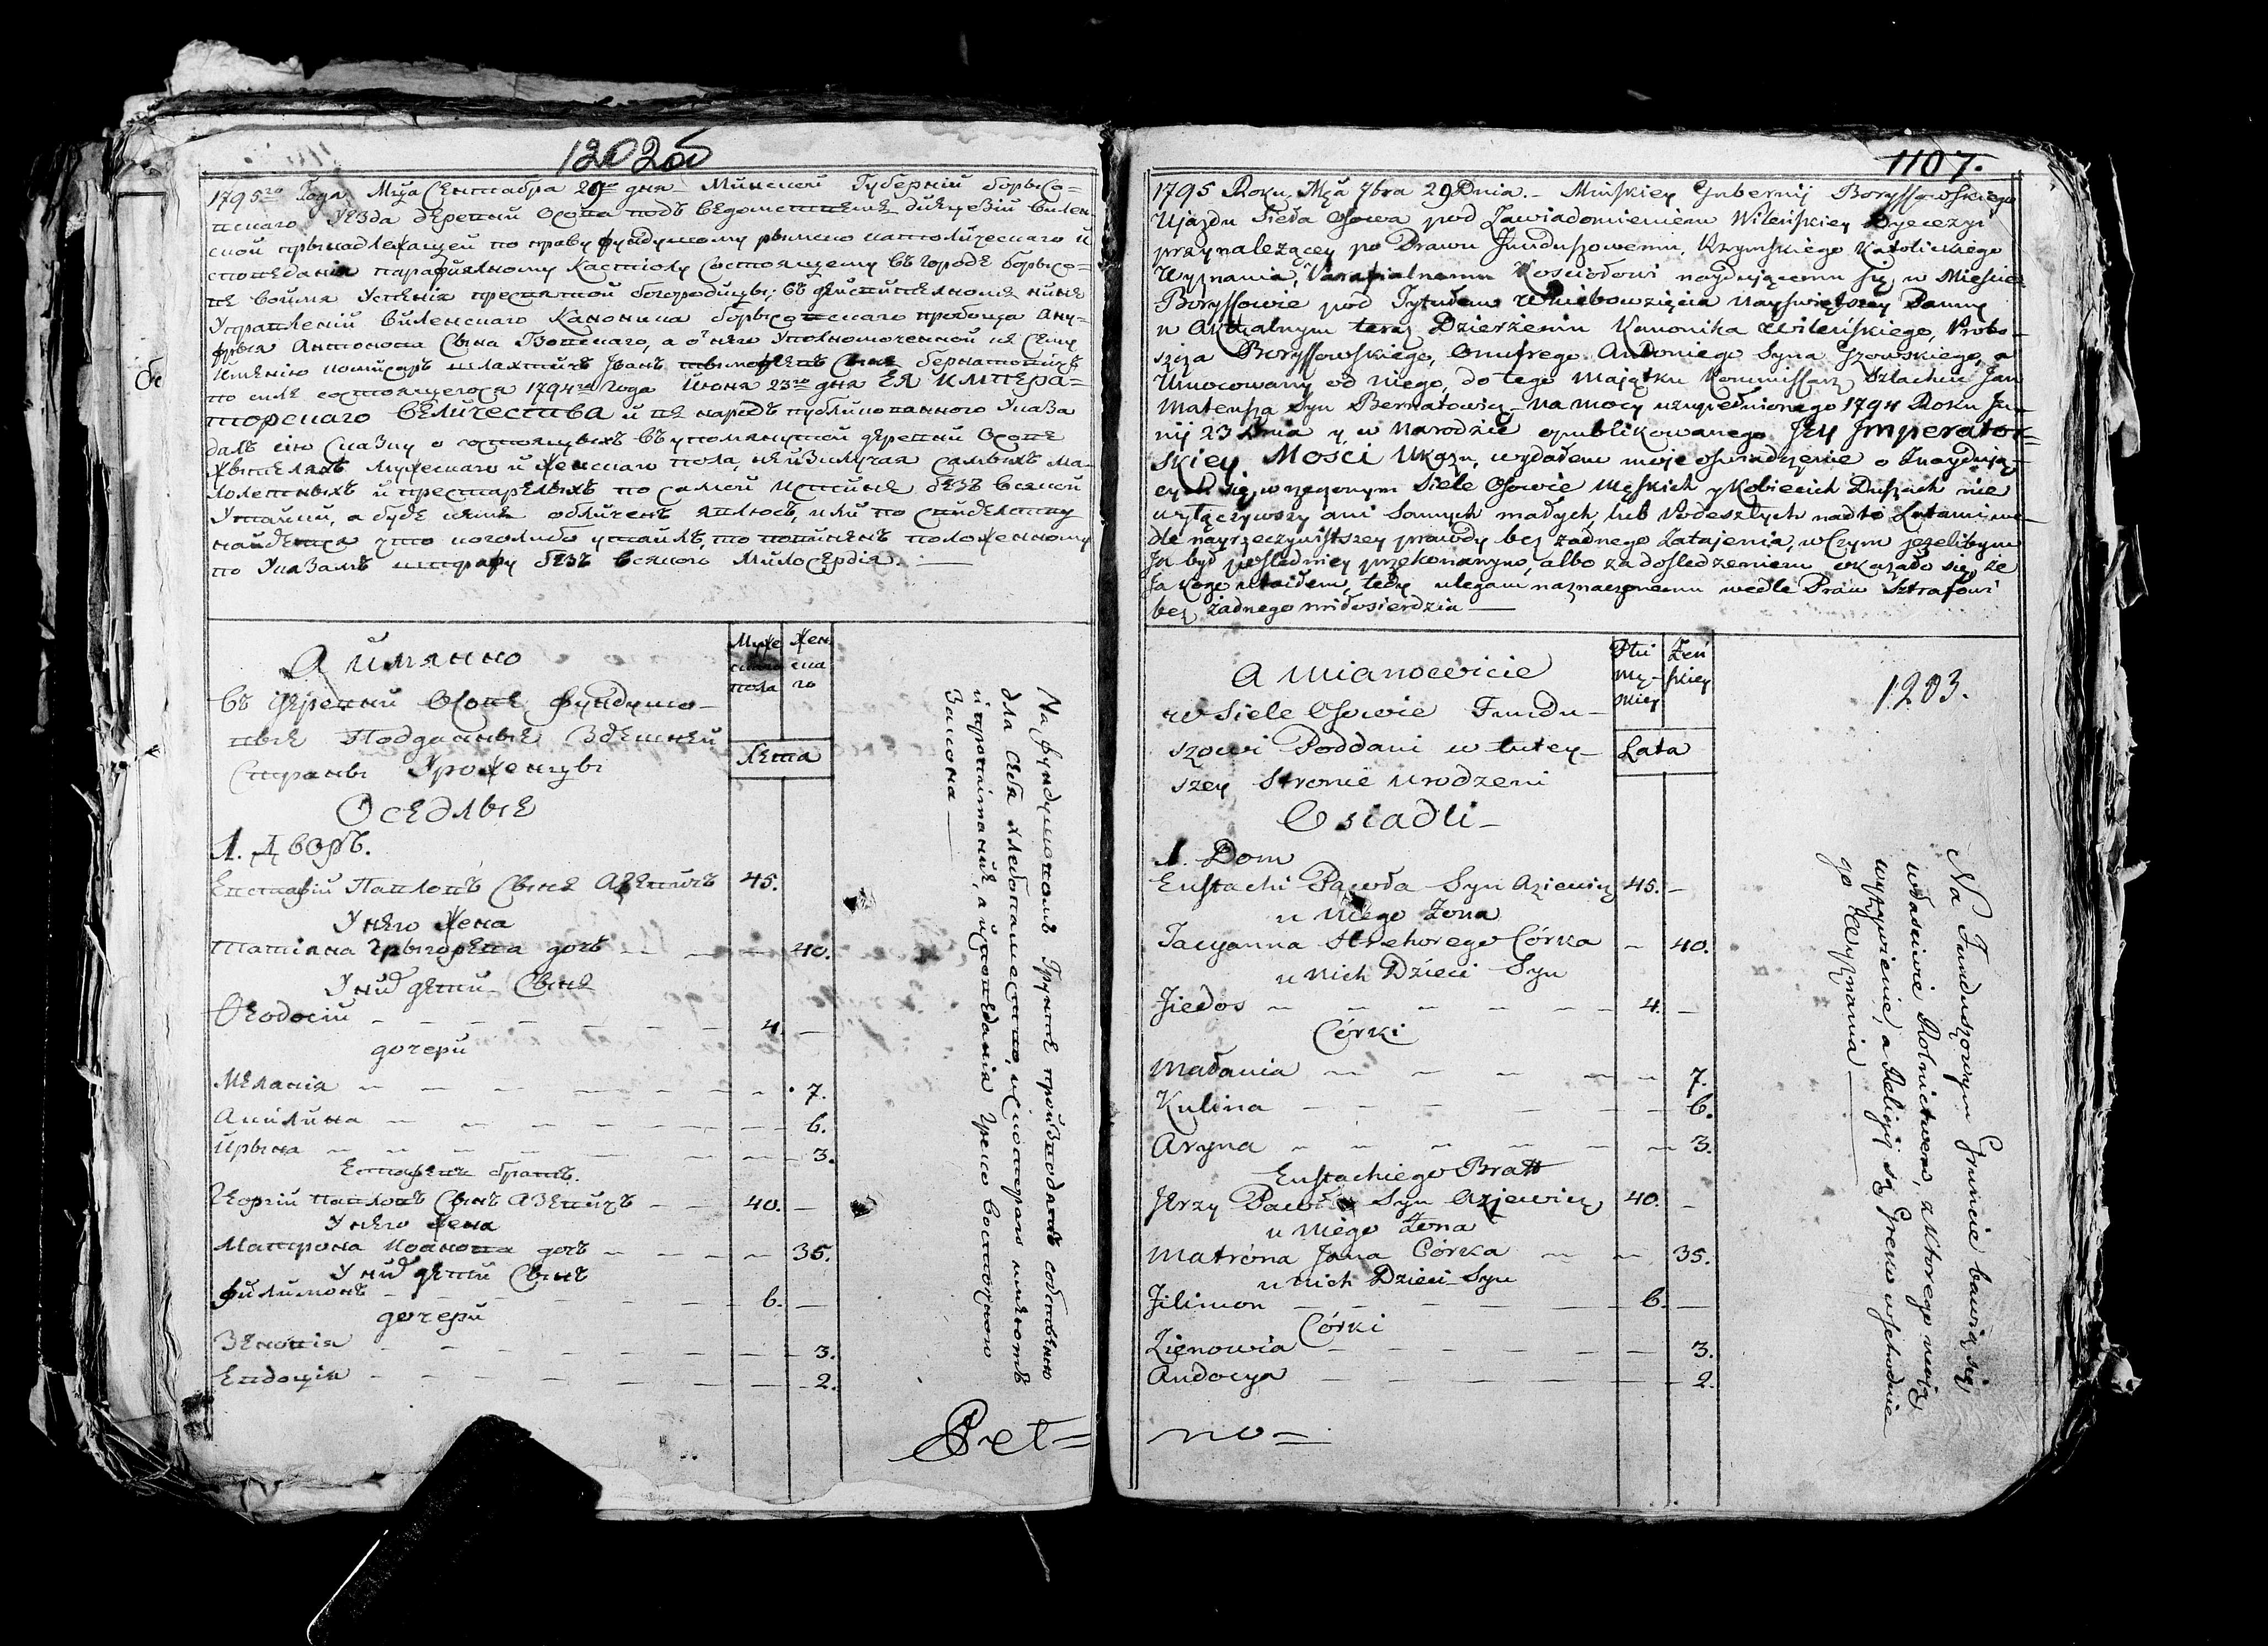 1202об
1795го Года Мца Сентабра 29го дня Минской Губернiи борысо=
вскаго уѣзда дѣревни Осова подъ вѣдомствомъ дiецезiи вилен
ской прынадлежащей по праву фундушому рымско католическаго и
споведанiя парафиялному Касtiолу состоящему въ городѣ борысо=
вѣ воимя Успенiя пресвятой богородицы; въ
Управленiи виленскаго Каноника борысовскаго пробоща Ану=
фрыя Антонова сына, а о него уполномоченной къ сему
имѣнiю комисаръ шляхтичъ Iванъ сынъ бернатовичъ
по силѣ состоящегося 1794го Года Июня 23го дня ЕЯ ИМПЕРА=
торскаго вѣличества и въ народъ публикованного Указа
далъ сiю сказку о состоящыхъ въ упомянутой дѣревни Осовѣ
жытеляхъ мужескаго и женскаго пола, не изключая самыхъ ма-
лолетныхъ и престарелыхъ по самой истинѣ безъ всякой
утайки, а буде обличенъ явлюсь, или по
найдется что коголибо утаилъ, то повиненъ положенному
по Указамъ штрафу безъ всякого милосердiя.
А имянно
въ дѣревни Осовѣ фундушо-
выя Подданныя здешней
стороны Уроженцы
Оседлыя
Муже
скаго
пола
Жен
ска
го
Лѣта
1. Дворъ.
Евстафiй Павловъ сынъ Азевичъ 45.
У него Жена
Татiана Грыгорева дочь 40.
У них дети Сынъ
Ѳеодосiй 4.
дочери
Меланiя 7.
Акилина 6.
Ирына 3.
Естафевъ братъ.
Георгiй Павловъ Сынъ Азевичъ 40.
У него Жена
Матрона Иоанова дочь 35.
У них дети Сынъ
Филимонъ 6.
дочери
Зеновiя 3.
Евдоцiя 2.
На фундушовомъ Грунтѣ производятъ собственно
для себя хлебопашество, ис котораго имѣютъ
и пропитанiя, а исповеданiя Греко восточного
Закона
Ret=
1107.
1795 Roku Mca 7bra 29 Dnia. Minskiey Gubernij Boryssowskiego
Ujazdu Sieła Osowa pod Zawiadomieniem Wileńskiey Dyecezyi
przynależącey po Prawu Funduszowemu, Rzymskiego Katolickiego
Wyznania, Parafialnemu Kościołowi naydującemu się w Mieście
Boryssowie pod Tytułem Wniebowzięcia Nayświętszey Panny
w Aktualnym teraz Dzierżeniu Kanonika Wileńskiego, Probo-
szcza Boryssowskiego, Onufrego Antoniego Syna Gzowskiego, a
Umocowany od niego, do tego Majątku Kommissarz Szlachcic Jan
Mateusza Syn Bernatowicz na mocy uzupełnionego 1794 Roku Ju-
nij 23 Dnia y w Narodzie opublikowanego Jey Jmperator=
skiey Mości Ukazu, wydałem moje oświadczenie o Znaydują-
cych się w rzeczonym Siele Osowie Męskich y Kobiecich Duszach nie
wyłączywszy ani Samych małych, lub Podeszłych nadto Latami we-
dle nayrzeczywistszey prawdy bez żadnego Zatajenia, w Czym jeżelibym
Ja był pośledniey przekonanym, albo za dośledzeniem okazało się, że
Ja kogo utaiłem, tedy ulegam naznaczonemu wedle Praw Sztrafowi
bez żadnego miłosierdzia
A mianowicie
w Siele Osowie Fundu-
szowi Poddani w tutey-
szey Stronie urodzeni
Osiadli
Płci
mę-
skiey
Żeń
skiey
Lata
1203.
1. Dom
Eustachi Pawła Syn Aziewicz 45.
u Niego Żona
Tacyanna Hrehorego Córka 40.
u Nich Dzieci Syn
Fiedos 4.
Córki
Małania 7.
Kulina 6.
Aryna 3.
Eustachiego Bratt
Jerzy Pawła Syn Azjewicz 40.
u Niego Żona
Matróna Jana Córka 35.
u Nich Dzieci Syn
Filimon 6.
Córki
Zienowia 3.
Audocya 2.
Na Funduszowym Gruncie bawią się
właściwie Rolnictwem, z którego mają
wyżywienie, a Religij są Greko wschodnie
go Wyznania
no=